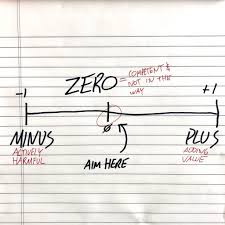 ZERO = COMPETENT &
NOT IN THE
WAY
-1
+1
Ø
MINUS
ACTIVELY
HARMFUL
AIM HERE
PLUS
ADDING
VALUE